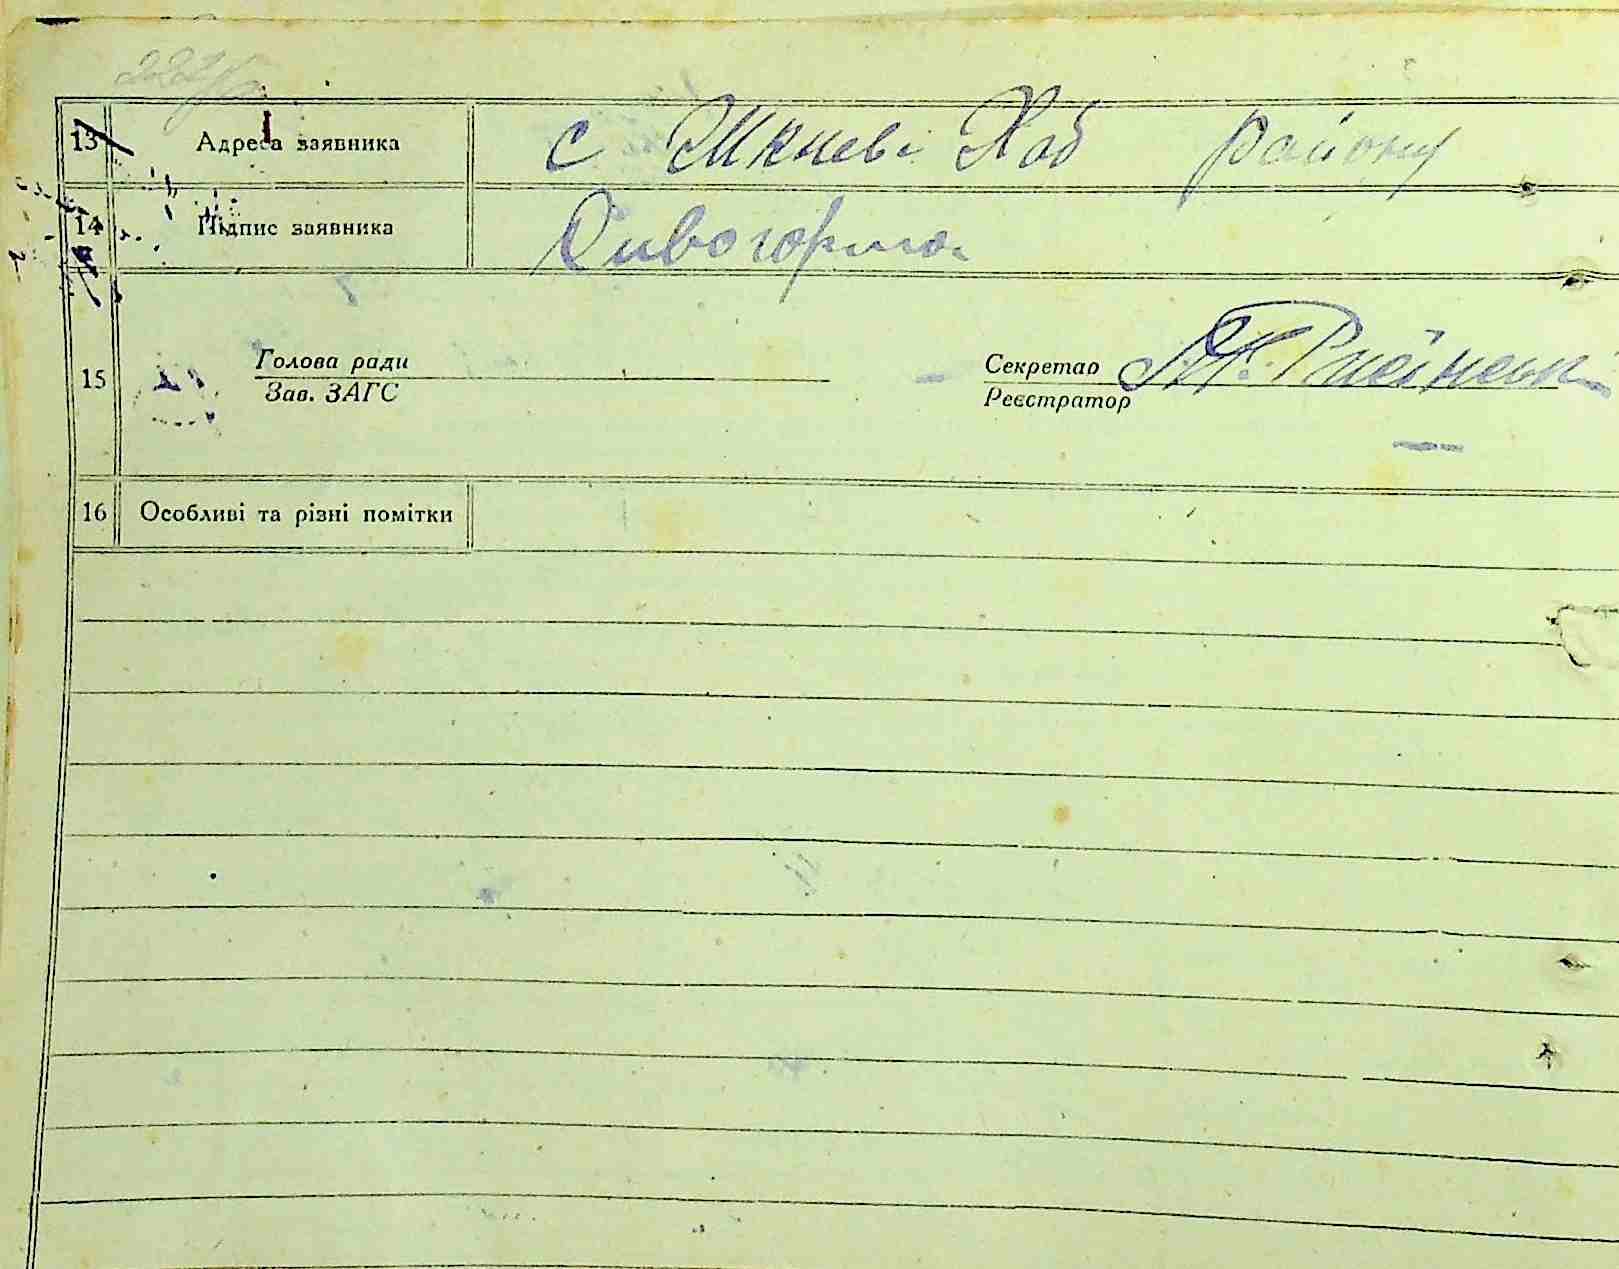 13 Адреса заявника с Жкневі Хаб району
14 Підпис заявника Сивогорло
15 Голова ради Секретар
Зав. ЗАГС Реєстратор
16 Особливі та різні помітки